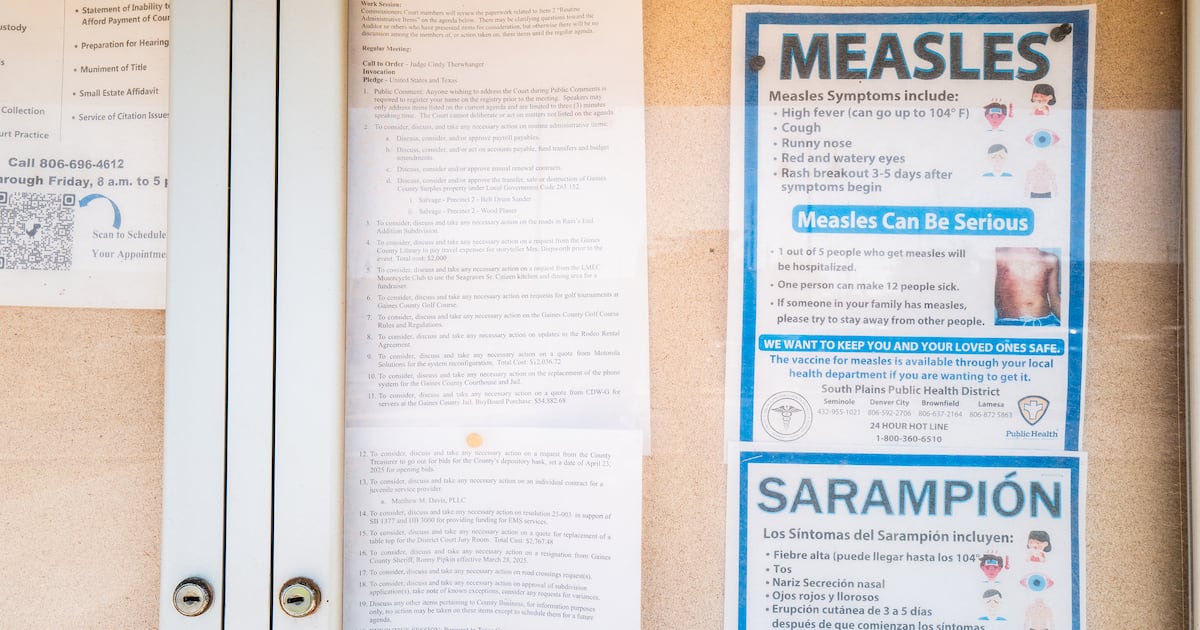 • Statement of Inability t
Afford Payment of Cour
ustody
• Preparation for Hearing
• Muniment of Title
• Small Estate Affidavit
Collection
• Service of Citation Issue
urt Practice
Call 806-696-4612
rough Friday, 8 a.m. to 5 p
Scan to Schedule
Your Appointme
Work Session:
Commissioners Court members will review the paperwork related to Item 2 "Routine
Administrative Items" on the agenda below. There may be clarifying questions toward the
Auditor or others who have presented items for consideration, but otherwise there will be no
discussion among the members of, or action taken on, these items until the regular agenda.
Regular Meeting:
Call to Order - Judge Cindy Therwhanger
Invocation
Pledge - United States and Texas
1. Public Comment: Anyone wishing to address the Court during Public Comments is
required to register your name on the registry prior to the meeting. Speakers may
only address items listed on the current agenda and are limited to three (3) minutes
speaking time. The Court cannot deliberate or act on matters not listed on the agenda.
2. To consider, discuss, and take any necessary action on routine administrative items:
a. Discuss, consider, and/or approve payroll payables.
b. Discuss, consider, and/or act on accounts payable, fund transfers and budget
amendments.
c. Discuss, consider and/or approve annual renewal contracts.
d. Discuss, consider and/or approve the transfer, sale or destruction of Gaines
County Surplus property under Local Government Code 263.152
i. Salvage - Precinct 2 - Belt Drum Sander
ii. Salvage - Precinct 2 - Wood Planer
3. To consider, discuss and take any necessary action on the roads in Rain's End
Addition Subdivision.
4. To consider, discuss and take any necessary action on a request from the Gaines
County Library to pay travel expenses for storyteller Mrs. Dispworth prior to the
event. Total cost: $2,000
5. To consider, discuss and take any necessary action on a request from the LMEC
Motorcycle Club to use the Seagraves Sr. Citizen kitchen and dining area for a
fundraiser.
6. To consider, discuss and take any necessary action on requests for golf tournaments at
Gaines County Golf Course.
7. To consider, discuss and take any necessary action on the Gaines County Golf Course
Rules and Regulations.
8. To consider, discuss and take any necessary action on updates to the Rodeo Rental
Agreement.
9. To consider, discuss and take any necessary action on a quote from Motorola
Solutions for the system reconfiguration. Total Cost: $12,036.72
10. To consider, discuss and take any necessary action on the replacement of the phone
system for the Gaines County Courthouse and Jail.
11. To consider, discuss and take any necessary action on a quote from CDW-G for
servers at the Gaines County Jail. BuyBoard Purchase: $54,882.68
12. To consider, discuss and take any necessary action on a request from the County
Treasurer to go out for bids for the County's depository bank, set a date of April 23,
2025 for opening bids.
13. To consider, discuss and take any necessary action on an individual contract for a
juvenile service provider.
a. Matthew M. Davis, PLLC
14. To consider, discuss and take any necessary action on resolution 25-003 in support of
SB 1377 and HB 3000 for providing funding for EMS services.
15. To consider, discuss and take any necessary action on a quote for replacement of a
table top for the District Court Jury Room. Total Cost: $2,767.48
16. To consider, discuss and take any necessary action on a resignation from Gaines
County Sheriff, Ronny Pipkin effective March 28, 2025.
17. To consider, discuss and take any necessary action on road crossings request(s).
18. To consider, discuss and take any necessary action on approval of subdivision
application(s), take note of known exceptions, consider any requests for variances.
19. Discuss any other items pertaining to County Business, for information purposes
only, no action may be taken on these items except to schedule them for a future
agenda.
MEASLES
Measles Symptoms include:
• High fever (can go up to 104° F)
• Cough
• Runny nose
• Red and watery eyes
• Rash breakout 3-5 days after
symptoms begin
Measles Can Be Serious
• 1 out of 5 people who get measles will
be hospitalized.
• One person can make 12 people sick.
• If someone in your family has measles,
please try to stay away from other people.
WE WANT TO KEEP YOU AND YOUR LOVED ONES SAFE.
The vaccine for measles is available through your local
health department if you are wanting to get it.
South Plains Public Health District
Seminole Denver City Brownfield Lamesa
432-955-1021 806-592-2706 806-637-2164 806-872 5863
24 HOUR HOT LINE
1-800-360-6510
Public Health
SARAMPIÓN
Los Síntomas del Sarampión incluyen:
• Fiebre alta (puede llegar hasta los 104°
• Tos
• Nariz Secreción nasal
• Ojos rojos y llorosos
• Erupción cutánea de 3 a 5 días
después de que comienzan los síntomas